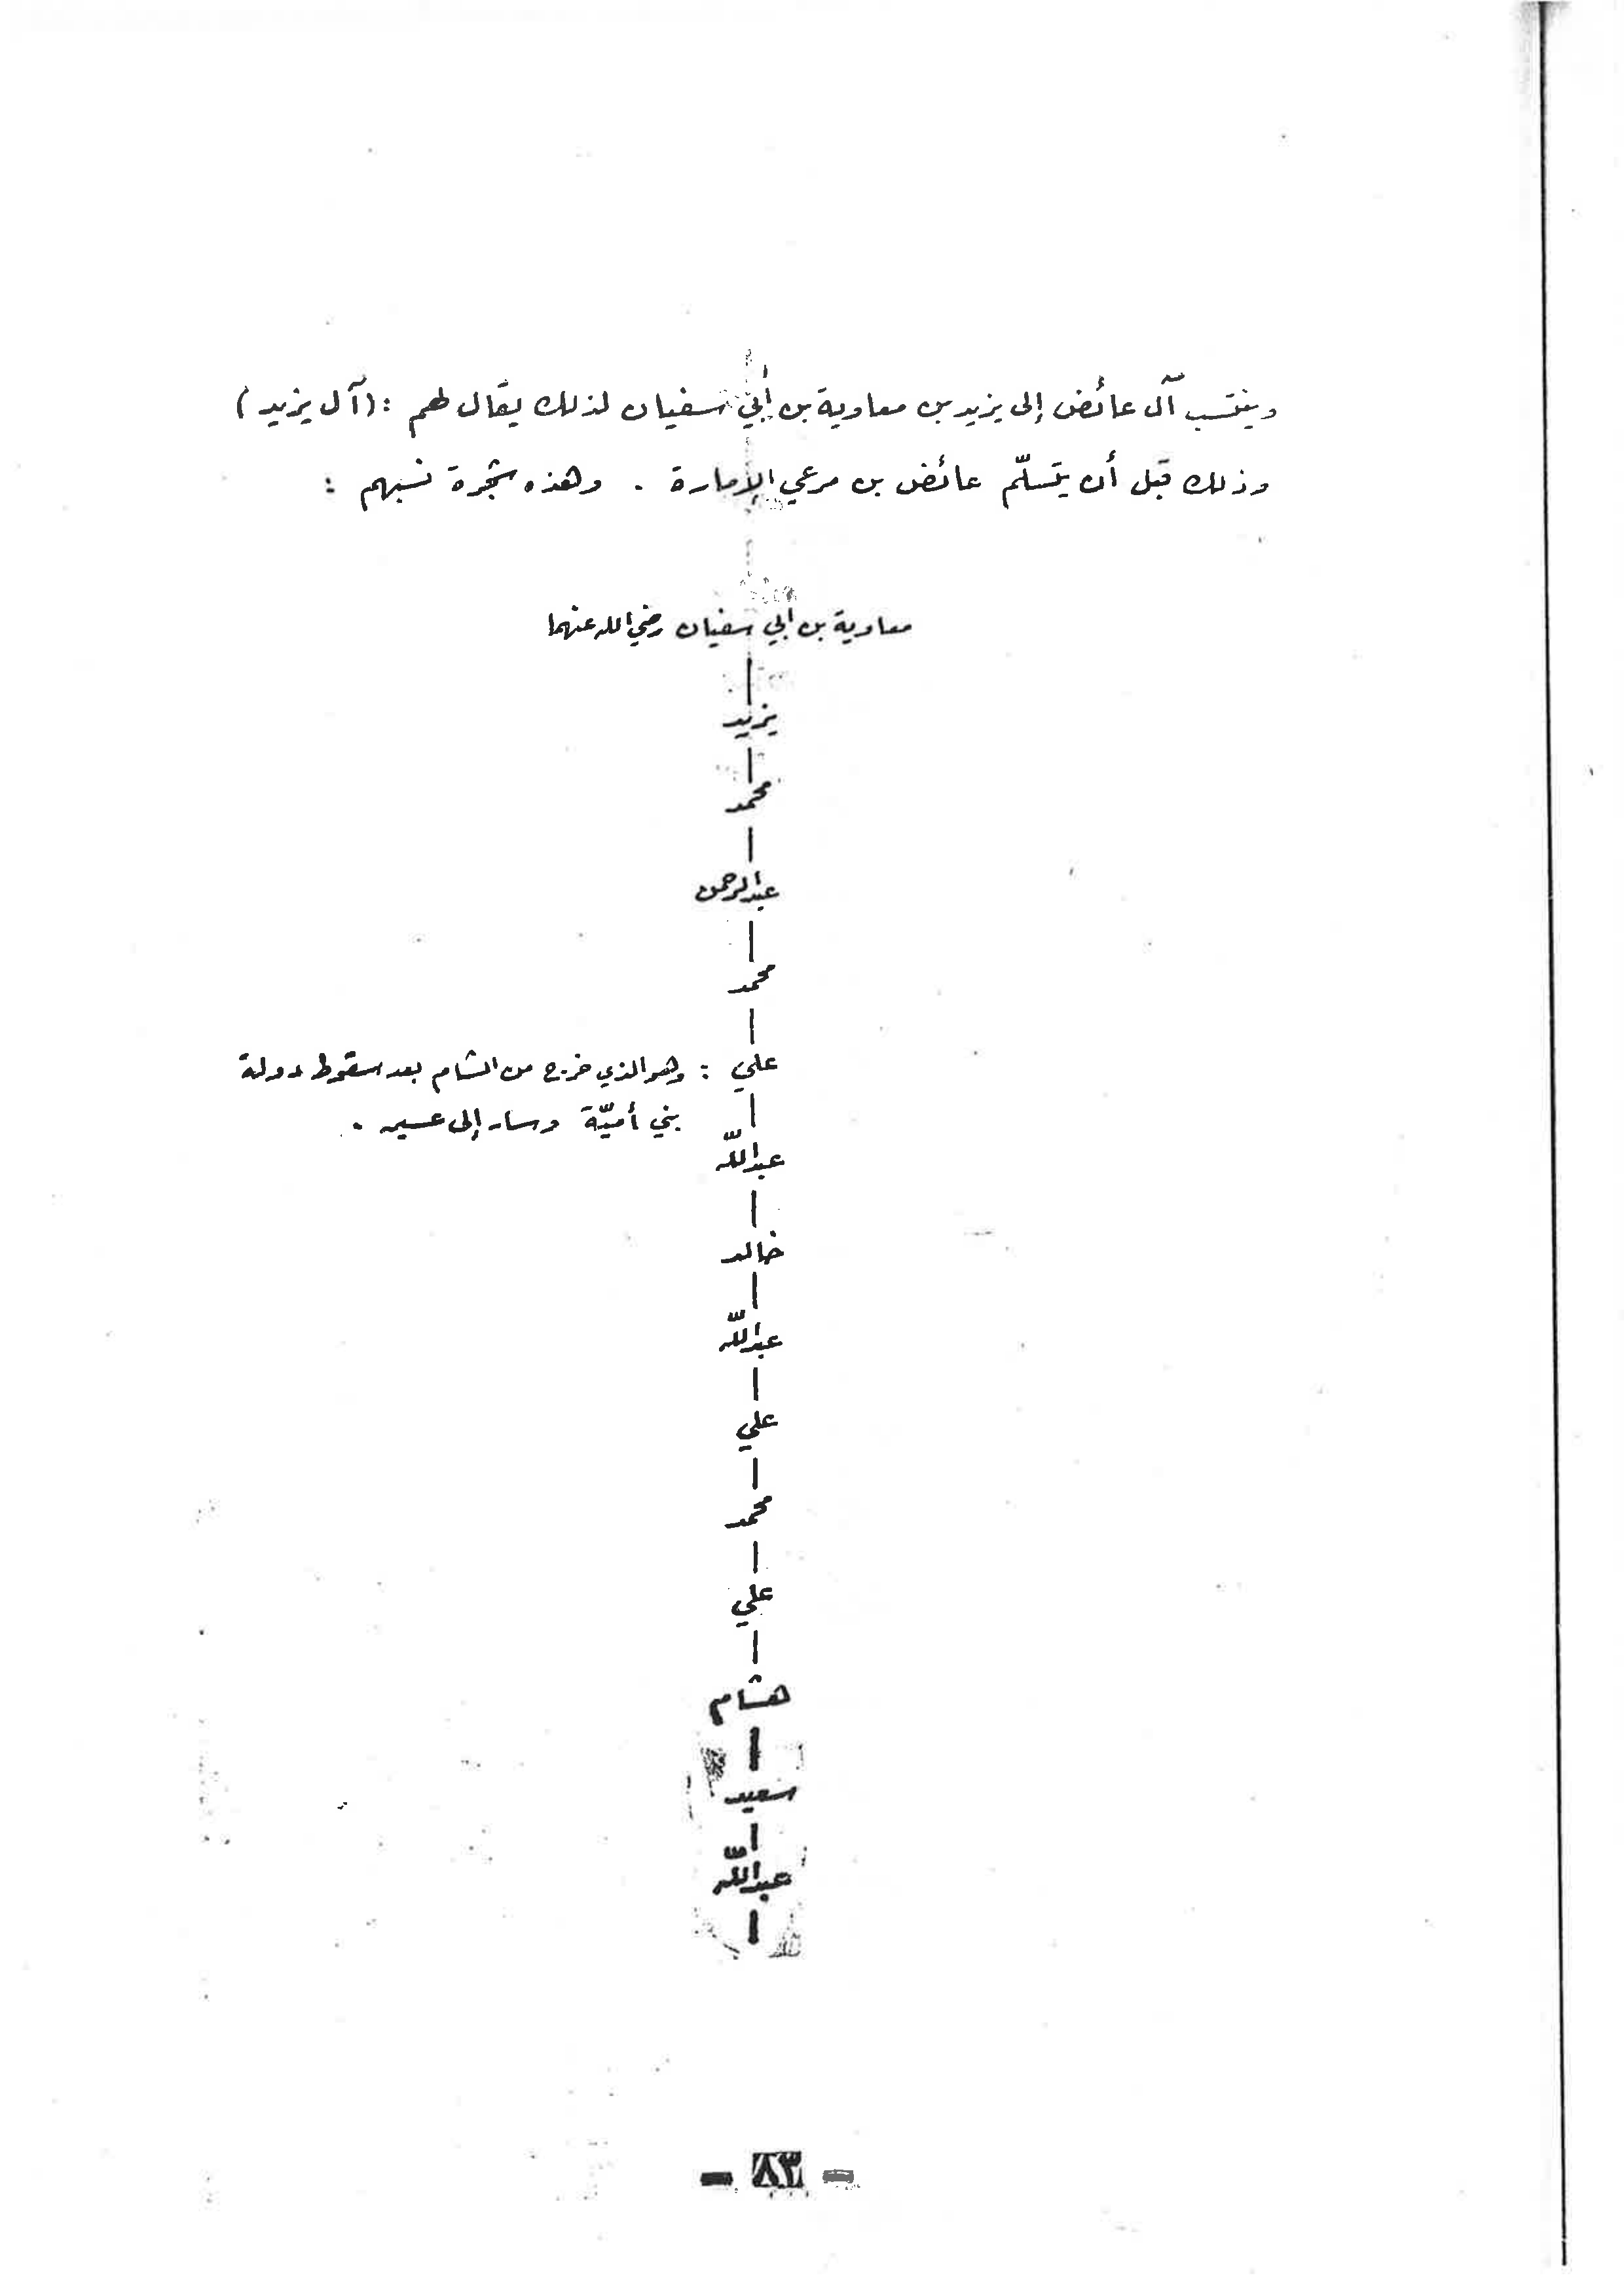 وينتسب آل عائض إلى يزيد بن معاوية بن أبي سفيان لذلك يقال لهم : (آل يزيد)
وذلك قبل أن يتسلّم عائض بن مرعي الإمارة . وهذه شجرة نسبهم :
معاوية بن ابي سفيان رضي الله عنهما
يزيد
محمد
عبدالرحمن
محمد
علي : وهو الذي خرج من الشام بعد سقوط دولة
بني أميّة وسار إلى عسير .
عبداللّه
خالد
عبداللّه
علي
محمد
علي
هشام
سعيد
عبداللّه
- ٨٣ -